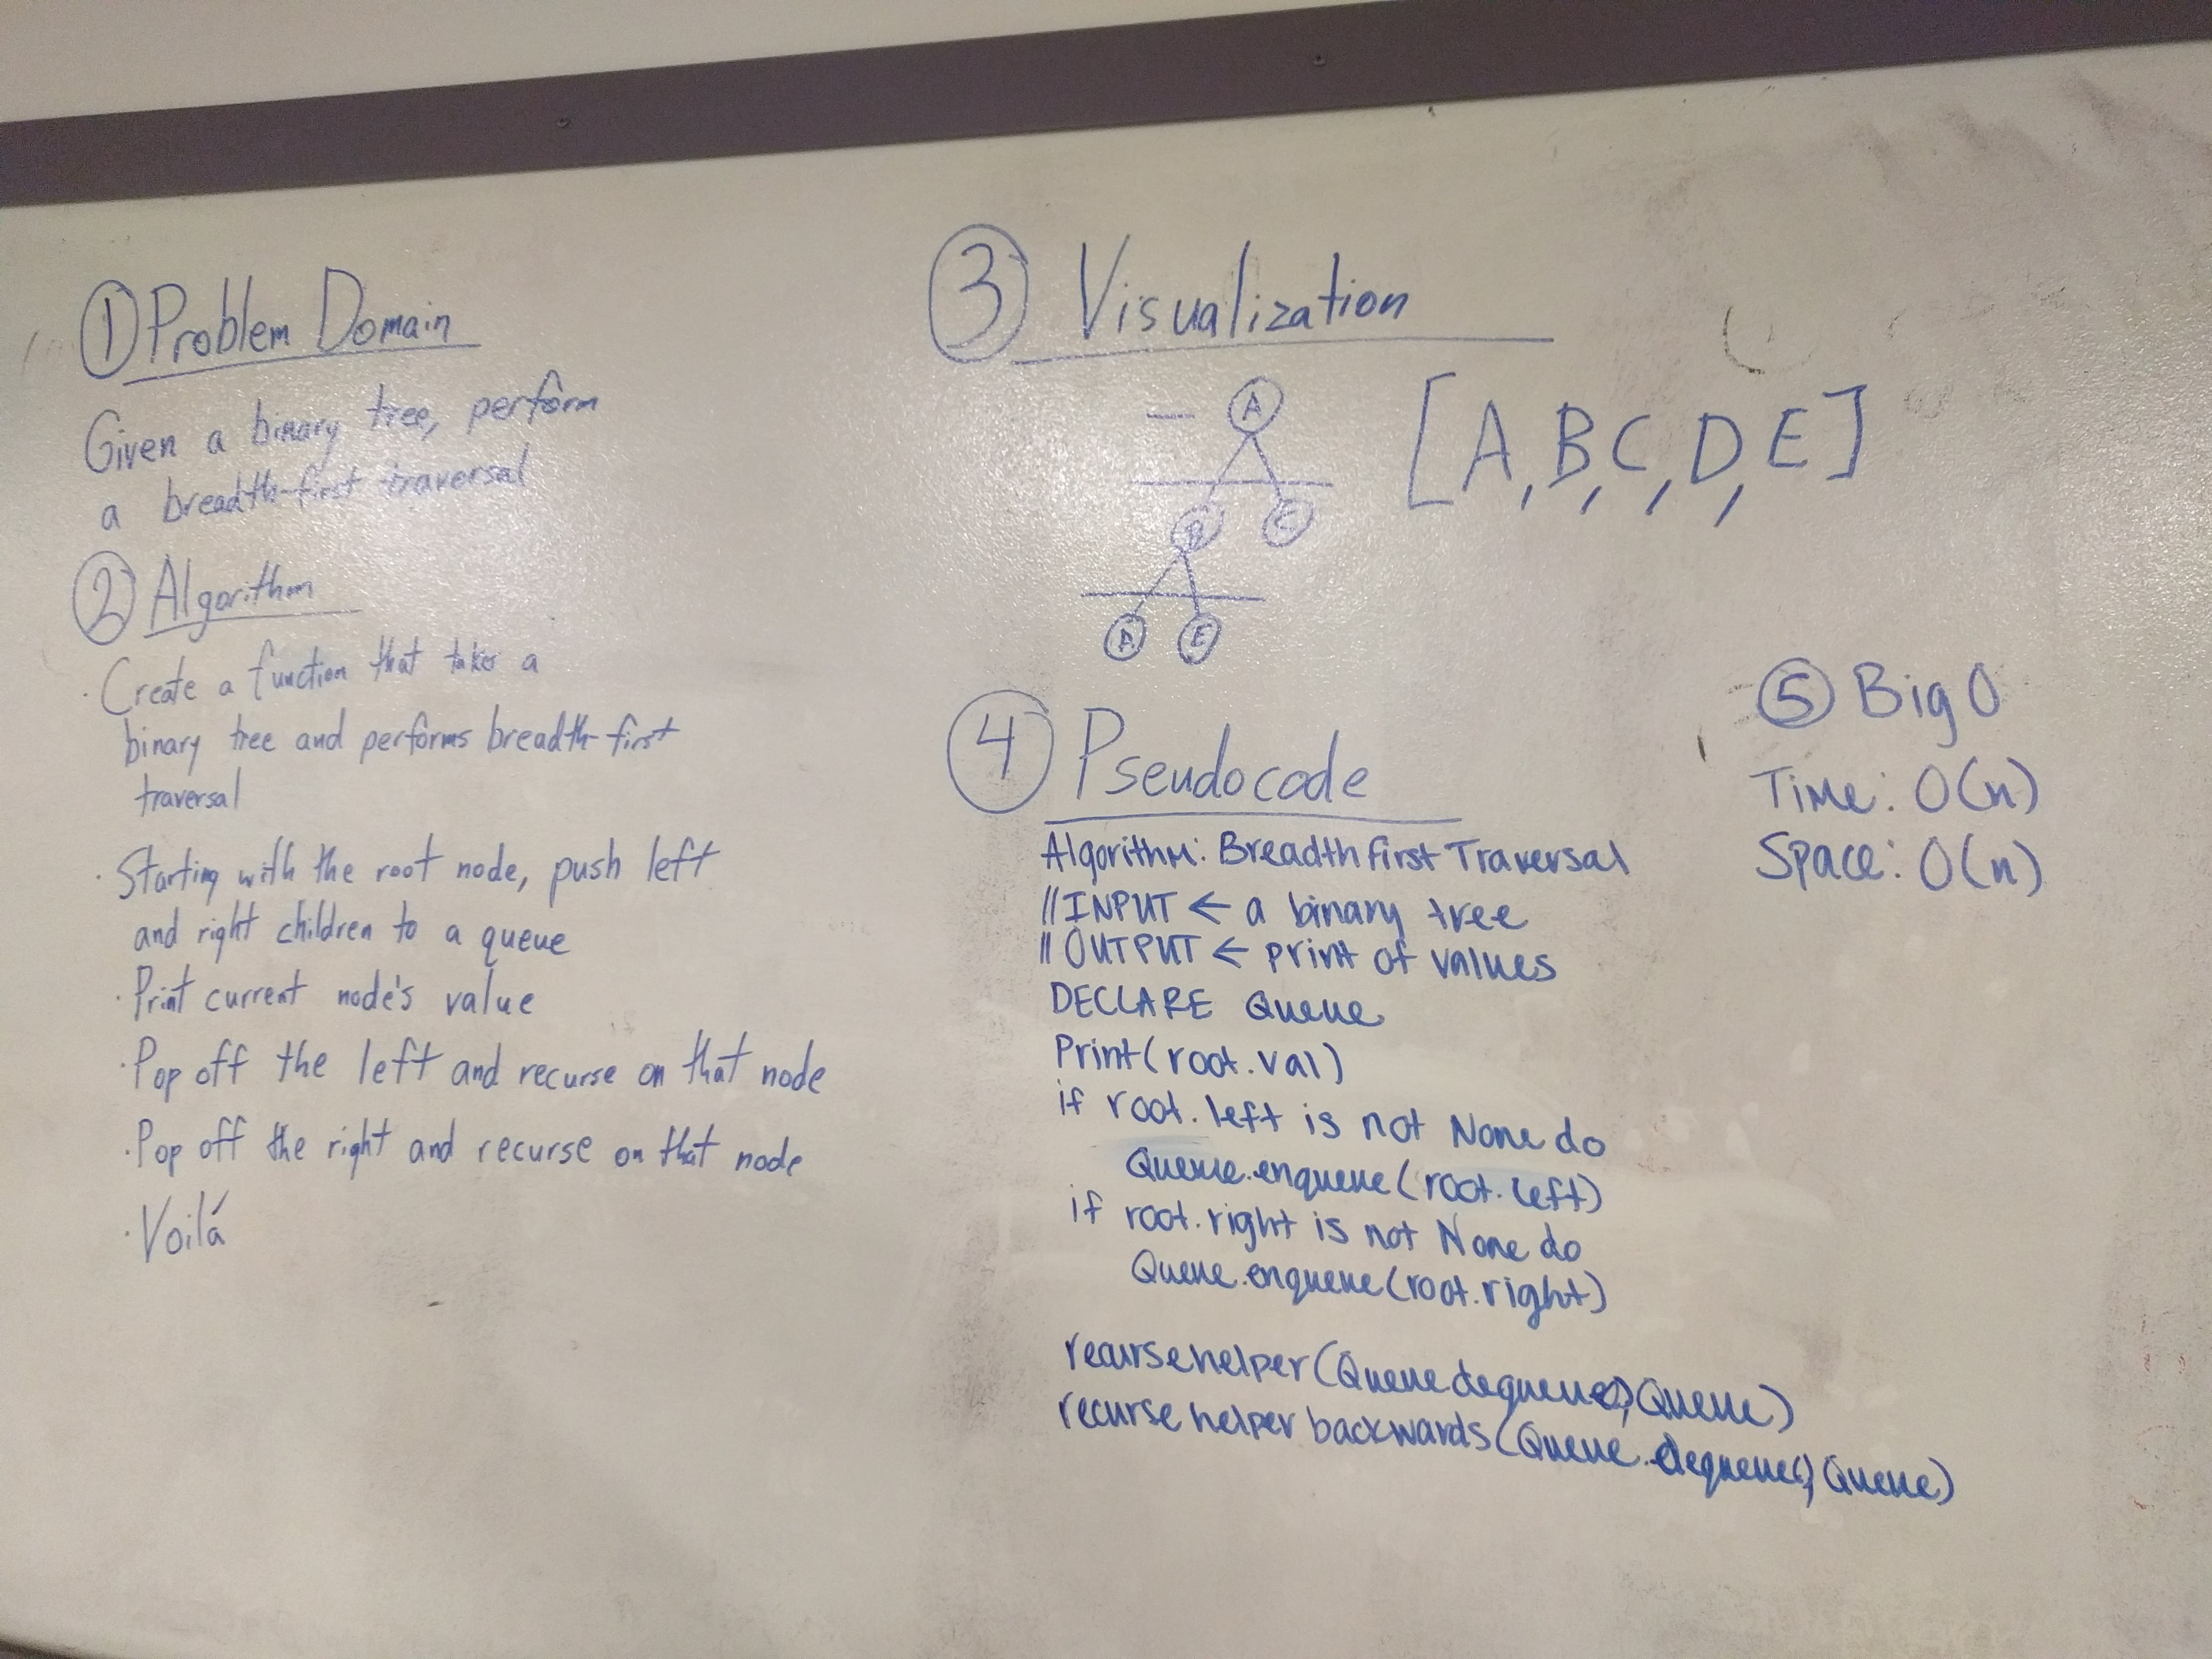 ① Problem Domain
Given a binary tree, perform
a breadth-first traversal
② Algorithm
· Create a function that takes a
binary tree and performs breadth-first
traversal
· Starting with the root node, push left
and right children to a queue
· Print current node's value
· Pop off the left and recurse on that node
· Pop off the right and recurse on that node
· Voilá
③ Visualization
A
B C
A E
[A, B, C, D, E]
④ Pseudocode
Algorithm: Breadth First Traversal
// INPUT ← a binary tree
// OUTPUT ← print of values
DECLARE Queue
Print(root.val)
if root.left is not None do
Queue.enqueue(root.left)
if root.right is not None do
Queue.enqueue(root.right)
recursehelper(Queue.dequeue(), Queue)
recurse helper backwards(Queue.dequeue(), Queue)
⑤ Big O
Time: O(n)
Space: O(n)